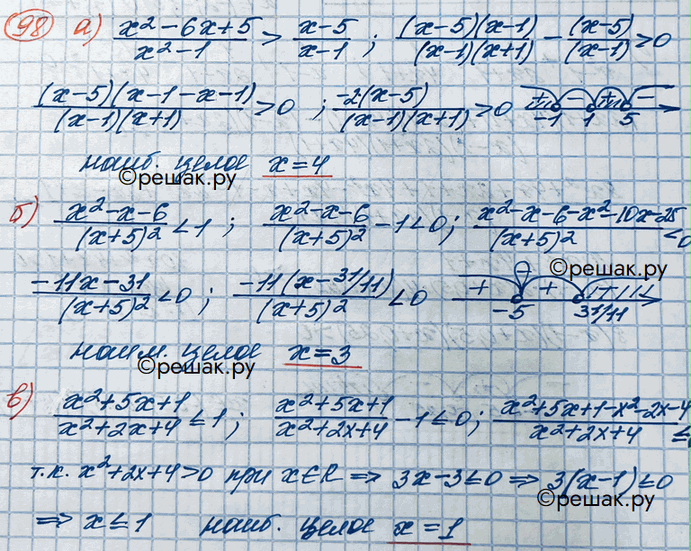 98 а) (x²-6x+5)/(x²-1) > (x-5)/(x-1) ; ((x-5)(x-1))/((x-1)(x+1)) - (x-5)/(x-1) > 0
((x-5)(x-1-x-1))/((x-1)(x+1)) > 0 ; (-2(x-5))/((x-1)(x+1)) > 0 + - + - -1 1 5
наиб. целое x=4
©решак.ру
б) (x²-x-6)/(x+5)² < 1 ; (x²-x-6)/(x+5)² - 1 < 0 ; (x²-x-6-x²-10x-25)/(x+5)² < 0
©решак.ру
(-11x-31)/(x+5)² < 0 ; (-11(x-31/11))/(x+5)² < 0 + - + -5 31/11
наим. целое x=3
©решак.ру
в) (x²+5x+1)/(x²+2x+4) ≤ 1 ; (x²+5x+1)/(x²+2x+4) - 1 ≤ 0 ; (x²+5x+1-x²-2x-4)/(x²+2x+4) ≤
т.к. x²+2x+4>0 при x∈R ⇒ 3x-3≤0 ⇒ 3(x-1)≤0
©решак.ру
⇒ x≤1 наиб. целое x=1